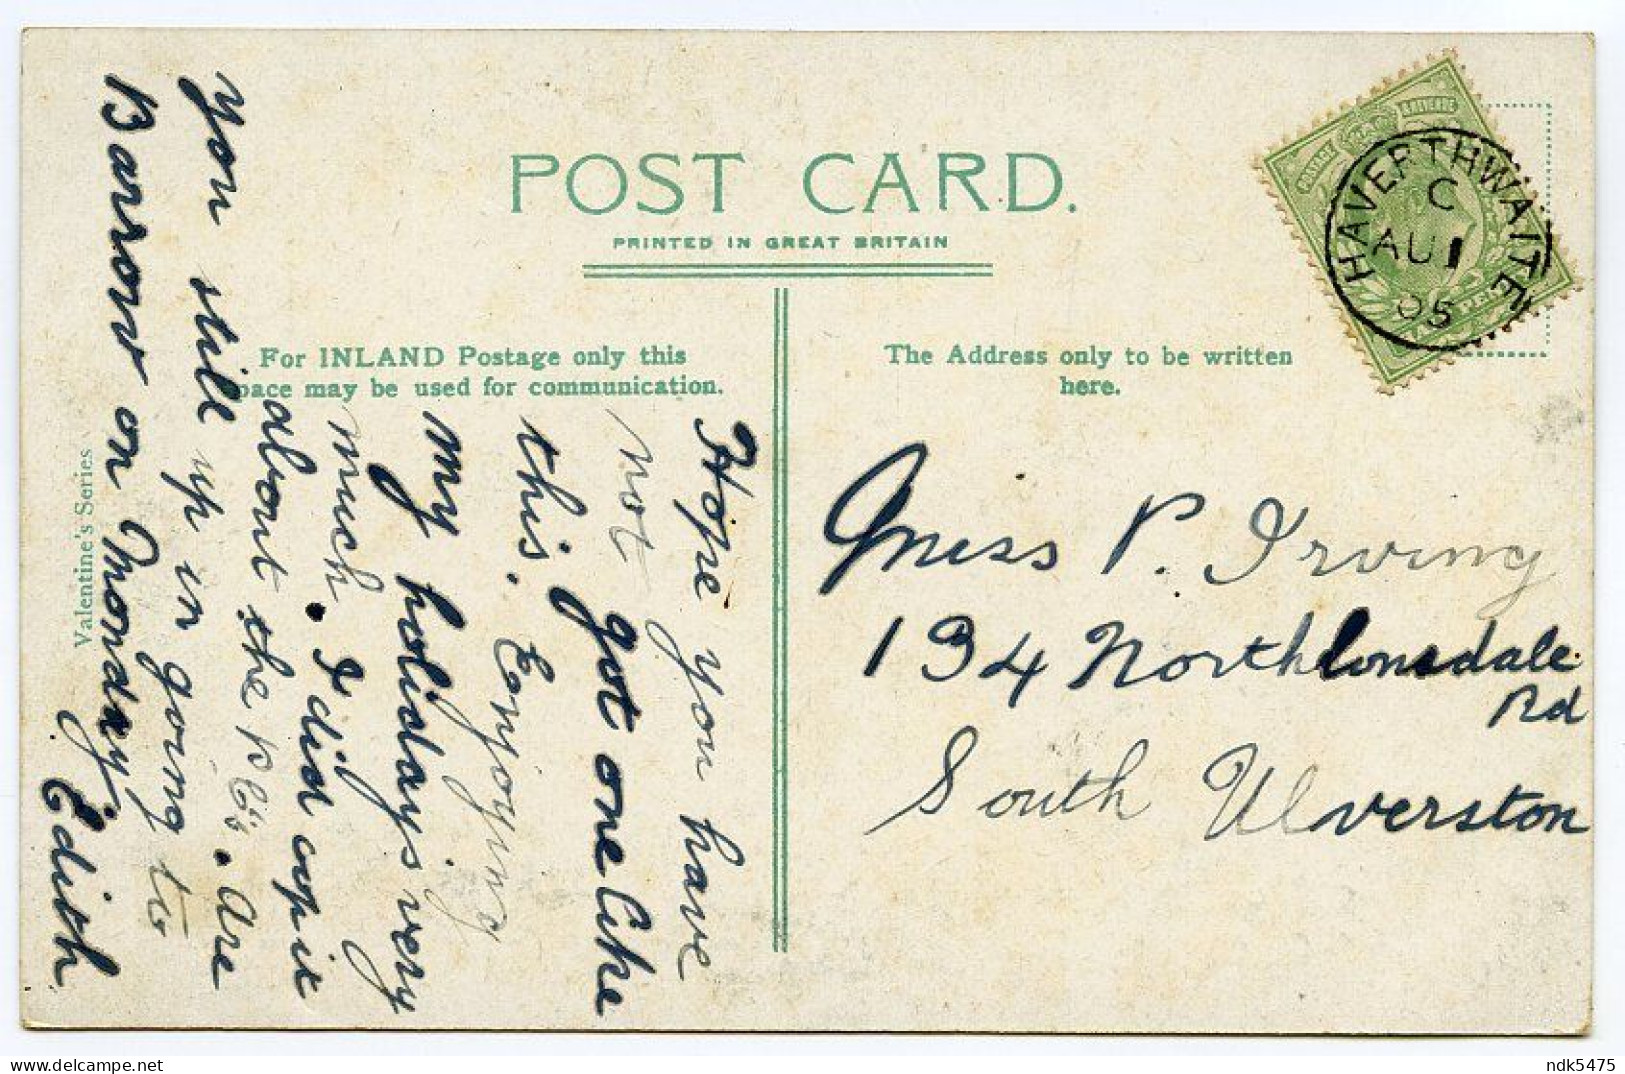 POST CARD.
PRINTED IN GREAT BRITAIN
For INLAND Postage only this
pace may be used for communication.
The Address only to be written
here.
Valentine's Series
POSTAGE & REVENUE
HALF PENNY
HAVERTHWAITE
C
AU 1
05
Miss P. Irving
134 Northlonsdale
Rd
South Ulverston
Hope you have
not got one like
this. Enjoying
my holidays very
much. I did opit
about the Are
you still up in going to
Barrow on Monday
Edith
ndk5475